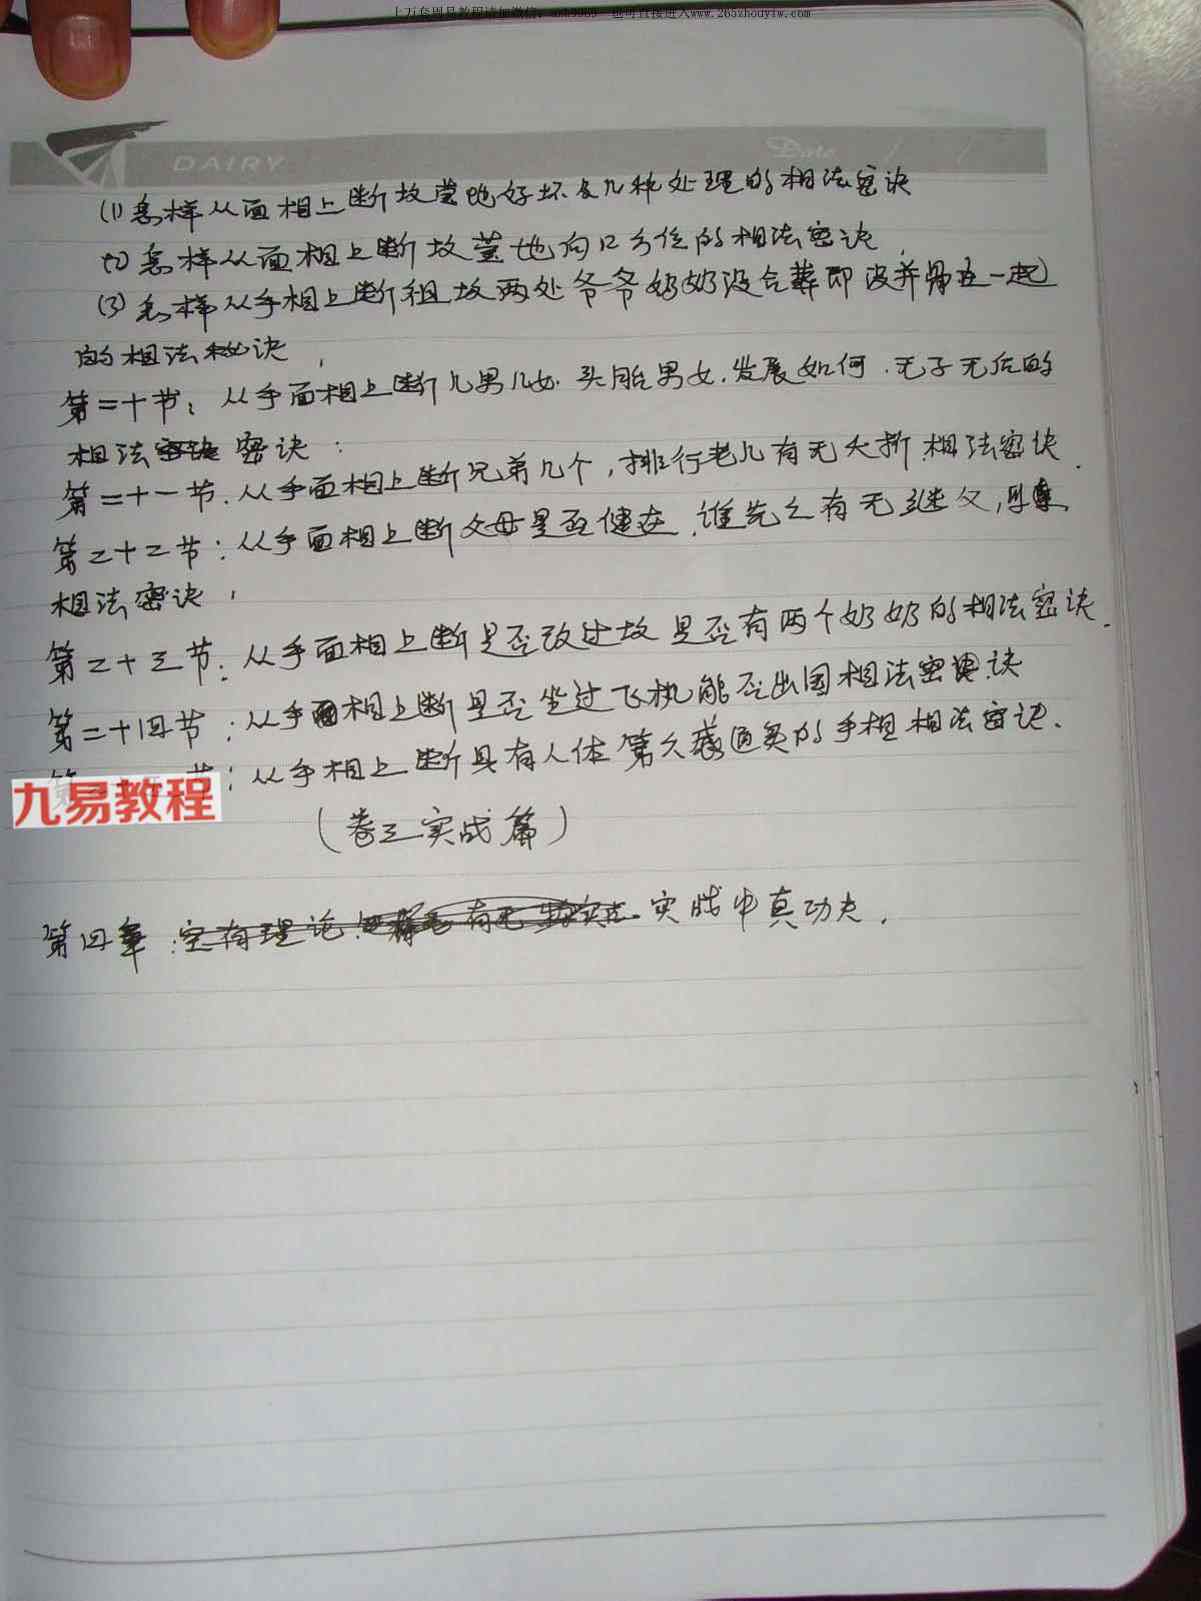 DAIRY
Date
(1) 怎样从面相上断坟茔地好坏及几种处理的相法密诀
(2) 怎样从面相上断坟茔地向口方位的相法密诀
(3) 怎样从手相上断祖坟两处爷爷奶奶没合葬即没并骨在一起
的相法秘诀
第二十节：从手面相上断几男几女.头胎男女.发展如何.无子无后的
相法密诀：
第二十一节.从手面相上断兄弟几个，排行老几有无夭折相法密诀.
第二十二节：从手面相上断父母是否健在.谁先亡有无继父，母
相法密诀，
第二十三节.从手面相上断是否改过坟是否有两个奶奶的相法密诀.
第二十四节：从手面相上断是否坐过飞机能否出国相法密诀
节：从手相上断具有人体第六感通灵的手相相法密诀.
九易教程
(卷三实战篇)
第四章：实战中真功夫.